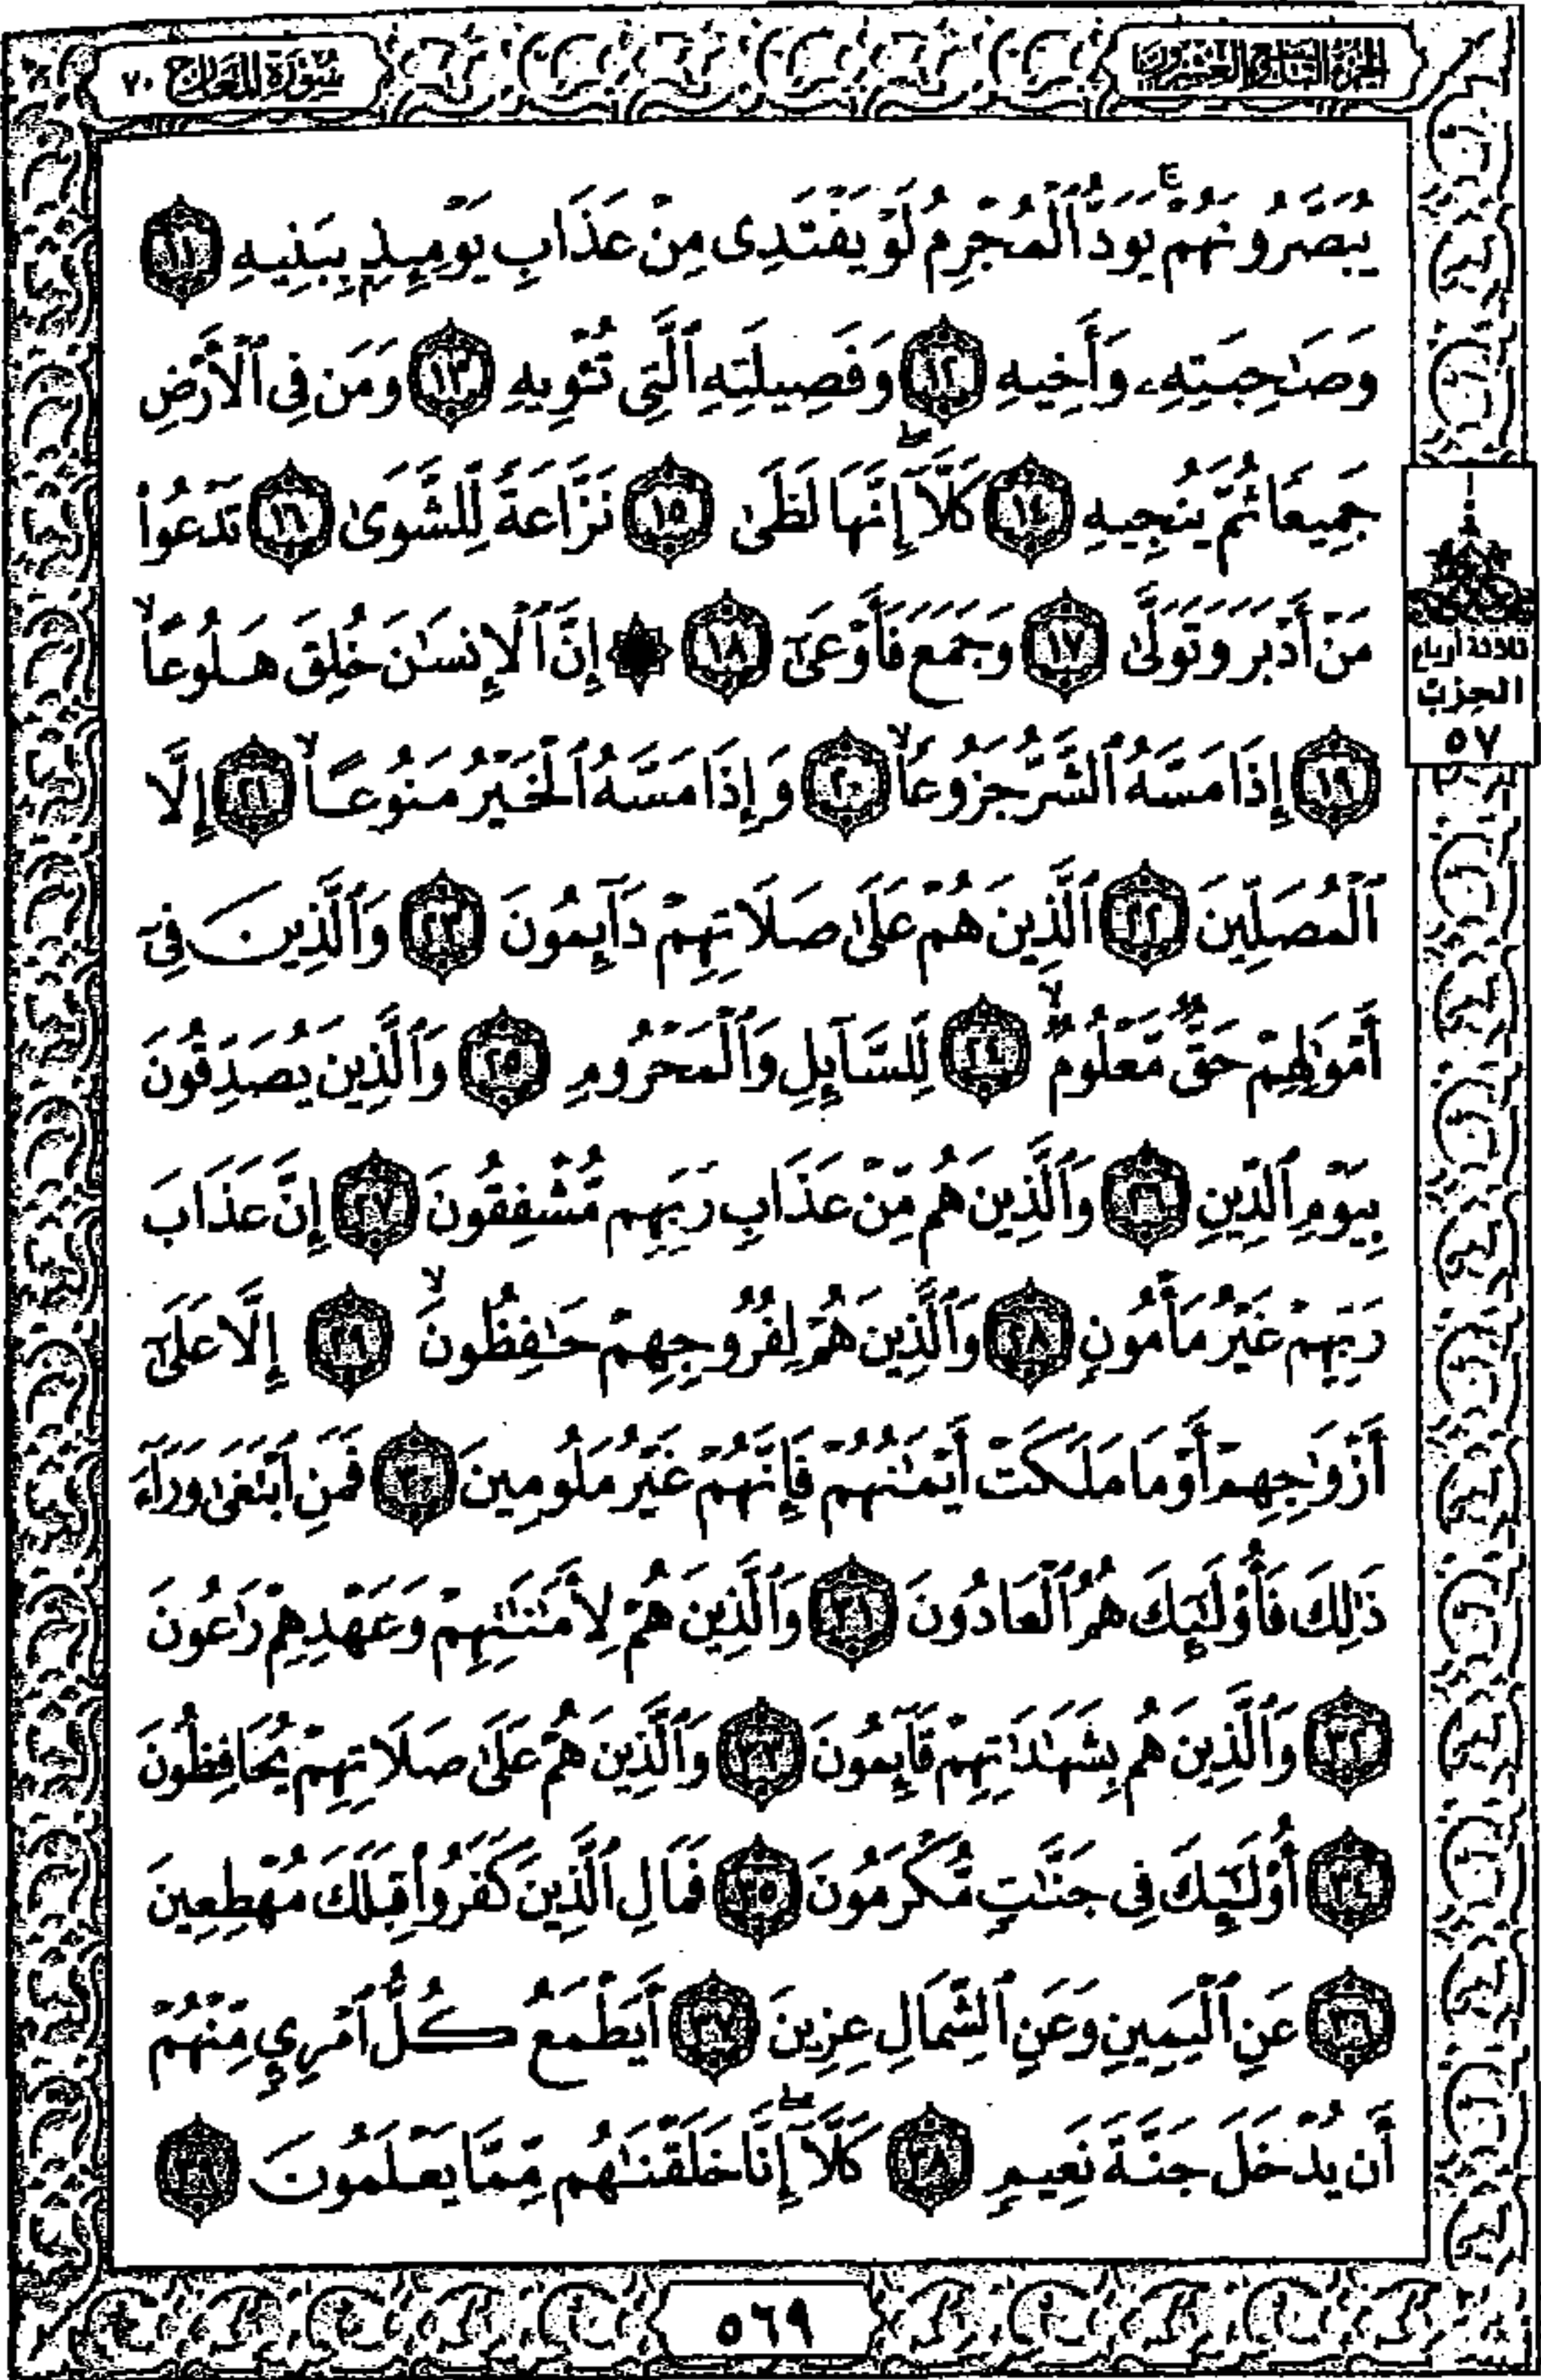 الجزء التاسع والعشرون
سورة المعارج ٧٠
يُبَصَّرُونَهُمْ ۚ يَوَدُّ ٱلْمُجْرِمُ لَوْ يَفْتَدِى مِنْ عَذَابِ يَوْمِئِذٍۭ بِبَنِيهِ ١١
وَصَٰحِبَتِهِۦ وَأَخِيهِ ١٢ وَفَصِيلَتِهِ ٱلَّتِى تُـْٔوِيهِ ١٣ وَمَن فِى ٱلْأَرْضِ
جَمِيعًا ثُمَّ يُنجِيهِ ١٤ كَلَّآ ۖ إِنَّهَا لَظَىٰ ١٥ نَزَّاعَةً لِّلشَّوَىٰ ١٦ تَدْعُوا۟
مَنْ أَدْبَرَ وَتَوَلَّىٰ ١٧ وَجَمَعَ فَأَوْعَىٰٓ ١٨ ۞ إِنَّ ٱلْإِنسَٰنَ خُلِقَ هَلُوعًا ۙ
١٩ إِذَا مَسَّهُ ٱلشَّرُّ جَزُوعًا ۙ ٢٠ وَإِذَا مَسَّهُ ٱلْخَيْرُ مَنُوعًا ۙ ٢١ إِلَّا
ٱلْمُصَلِّينَ ٢٢ ٱلَّذِينَ هُمْ عَلَىٰ صَلَاتِهِمْ دَآئِمُونَ ٢٣ وَٱلَّذِينَ فِىٓ
أَمْوَٰلِهِمْ حَقٌّ مَّعْلُومٌ ۙ ٢٤ لِّلسَّآئِلِ وَٱلْمَحْرُومِ ٢٥ وَٱلَّذِينَ يُصَدِّقُونَ
بِيَوْمِ ٱلدِّينِ ٢٦ وَٱلَّذِينَ هُم مِّنْ عَذَابِ رَبِّهِم مُّشْفِقُونَ ٢٧ إِنَّ عَذَابَ
رَبِّهِمْ غَيْرُ مَأْمُونٍ ٢٨ وَٱلَّذِينَ هُمْ لِفُرُوجِهِمْ حَٰفِظُونَ ۙ ٢٩ إِلَّا عَلَىٰٓ
أَزْوَٰجِهِمْ أَوْ مَا مَلَكَتْ أَيْمَٰنُهُمْ فَإِنَّهُمْ غَيْرُ مَلُومِينَ ٣٠ فَمَنِ ٱبْتَغَىٰ وَرَآءَ
ذَٰلِكَ فَأُو۟لَٰٓئِكَ هُمُ ٱلْعَادُونَ ٣١ وَٱلَّذِينَ هُمْ لِأَمَٰنَٰتِهِمْ وَعَهْدِهِمْ رَٰعُونَ
٣٢ وَٱلَّذِينَ هُم بِشَهَٰدَٰتِهِمْ قَآئِمُونَ ٣٣ وَٱلَّذِينَ هُمْ عَلَىٰ صَلَاتِهِمْ يُحَافِظُونَ
٣٤ أُو۟لَٰٓئِكَ فِى جَنَّٰتٍ مُّكْرَمُونَ ٣٥ فَمَالِ ٱلَّذِينَ كَفَرُوا۟ قِبَلَكَ مُهْطِعِينَ
٣٦ عَنِ ٱلْيَمِينِ وَعَنِ ٱلشِّمَالِ عِزِينَ ٣٧ أَيَطْمَعُ كُلُّ ٱمْرِئٍ مِّنْهُمْ
أَن يُدْخَلَ جَنَّةَ نَعِيمٍ ٣٨ كَلَّآ ۖ إِنَّا خَلَقْنَٰهُم مِّمَّا يَعْلَمُونَ ٣٩
ثلاثة أرباع
الحزب
٥٧
٥٦٩